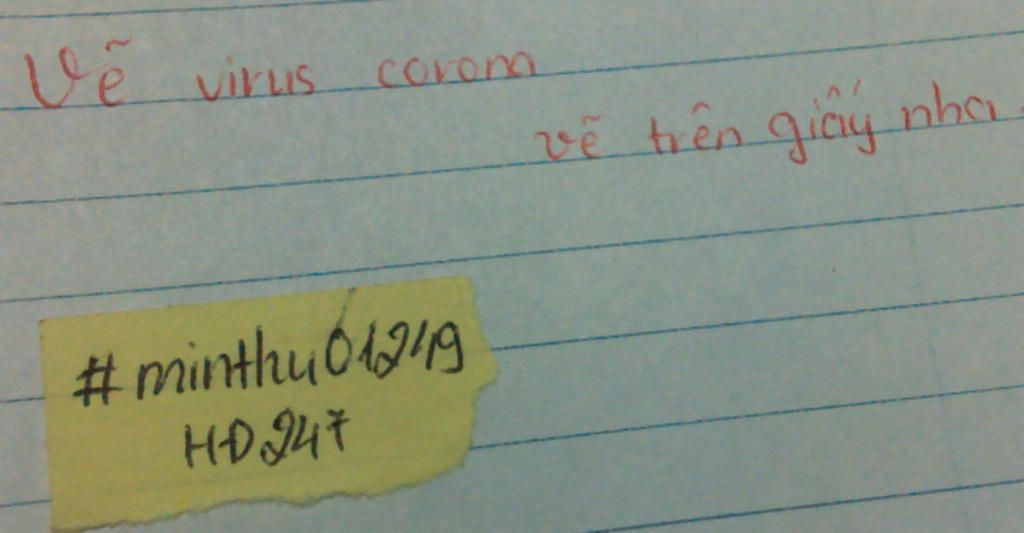 Vẽ virus corona
vẽ trên giấy nha.
#minthu01249
HĐ247